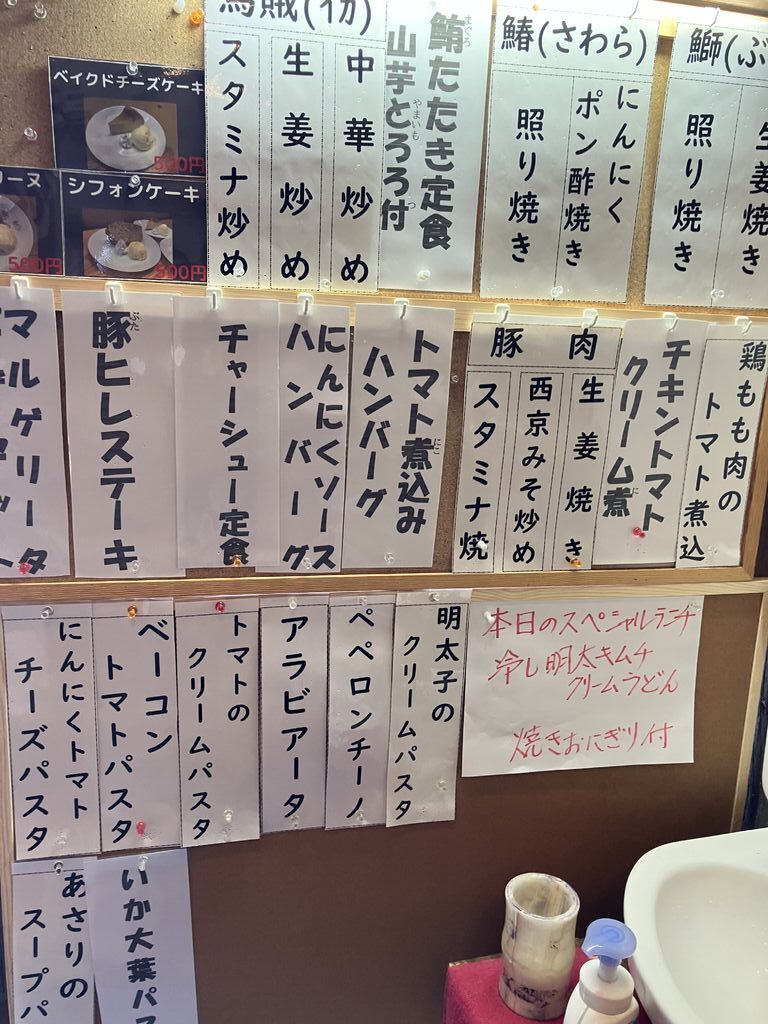 ベイクドチーズケーキ
500円
シフォンケーキ
500円
ーヌ
500円
烏賊(イカ)
中華炒め
生姜炒め
スタミナ炒め
鮪たたき定食
まぐろ
山芋とろろ付
やまいも
つ
鰆(さわら)
にんにく
ポン酢焼き
照り焼き
鰤(ぶ
生姜焼き
照り焼き
鶏もも肉の
トマト煮込
チキントマト
クリーム煮
に
豚肉
生姜焼き
西京みそ炒め
スタミナ焼
トマト煮込み
にこ
ハンバーグ
にんにくソース
ハンバーグ
チャーシュー定食
豚ヒレステーキ
ぶた
マルゲリータ
明太子の
クリームパスタ
ペペロンチーノ
アラビアータ
トマトの
クリームパスタ
ベーコン
トマトパスタ
にんにくトマト
チーズパスタ
本日のスペシャルランチ
冷し明太キムチ
クリームうどん
焼きおにぎり付
いか大葉パス
あさりの
スープパ